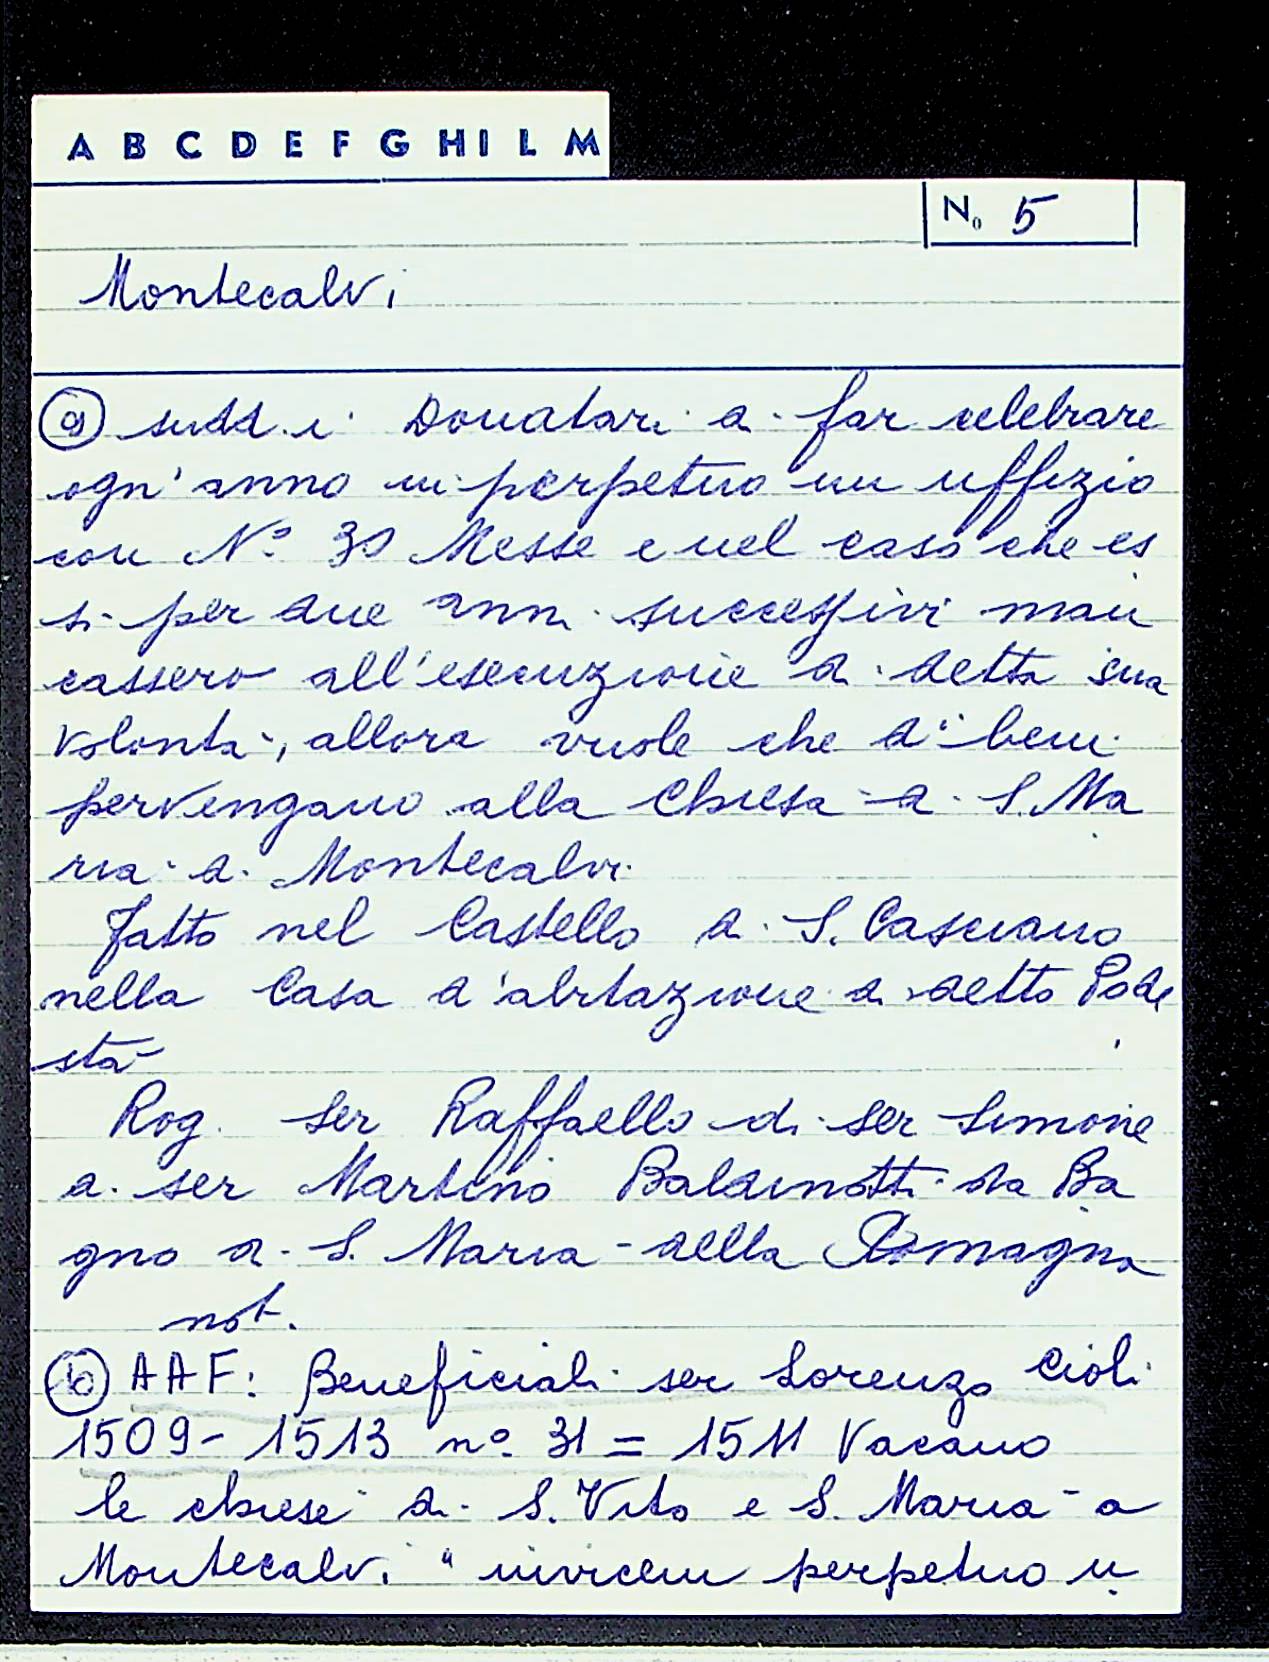 A B C D E F G H I L M
No 5
Montecalvi
(a) sudd.i Donatari a far celebrare
ogn'anno in perpetuo un uffizio
con N° 30 Messe e nel caso che es
si per due anni successivi man
cassero all'esecuzione di detta sua
volontà, allora vuole che d.i beni
pervengano alla Chiesa di S. Ma
ria di Montecalvi.
Fatto nel Castello di S. Casciano
nella Casa d'abitazione di detto Pode
stà
Rog. ser Raffaello di ser Simone
di ser Martino Baldinotti da Ba
gno di S. Maria della Romagna
not.
(b) AAF: Beneficiali ser Lorenzo Cioli
1509-1513 n° 31 = 1511 Vacano
le chiese di S. Vito e S. Maria a
Montecalvi "invicem perpetuo u